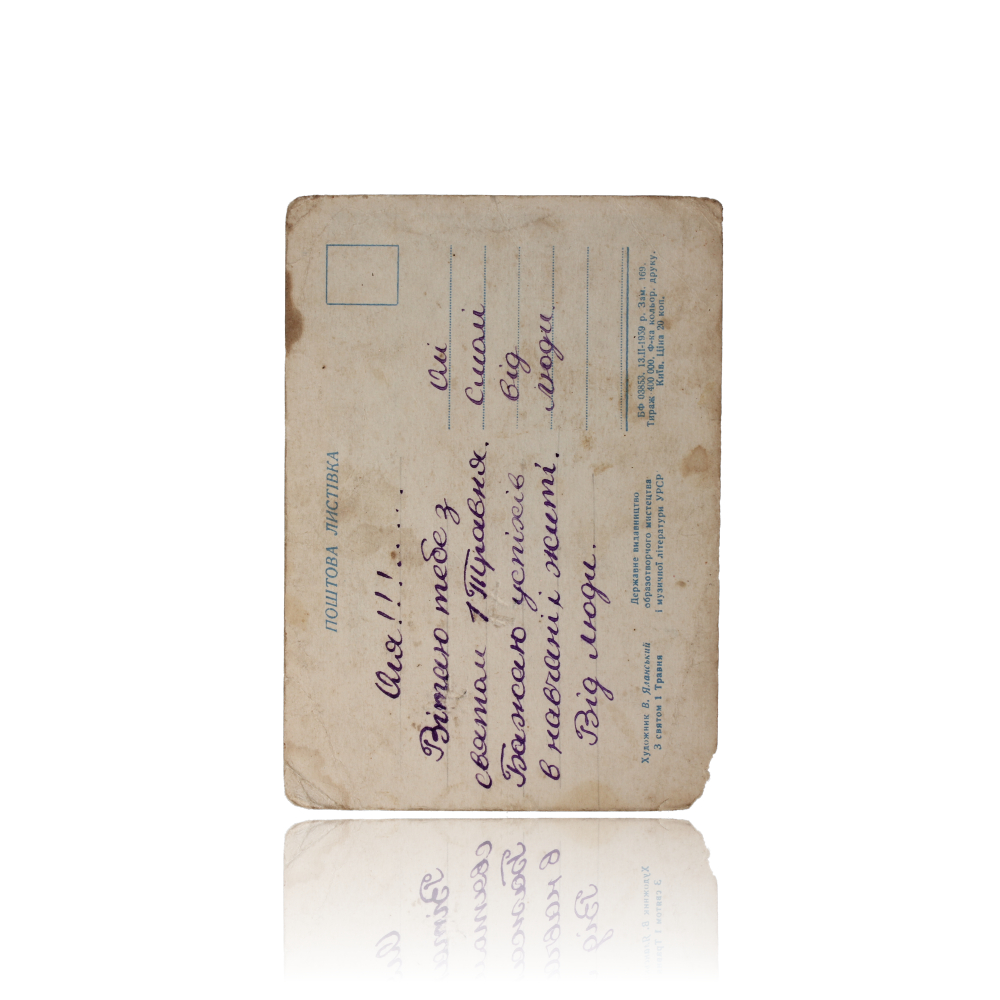 ПОШТОВА ЛИСТІВКА
Оля!!!....
Вітаю тебе з
святом 1 Травня.
Бажаю успіхів
в навчані і житі.
Від Люди.
Олі
Смолі
від
Люди.
Художник В. Яланський
З святом 1 Травня
Державне видавництво
образотворчого мистецтва
і музичної літератури УРСР
БФ 03853. 13.II-1959 р. Зам. 169.
Тираж 400 000. Ф-ка кольор. друку.
Київ. Ціна 20 коп.